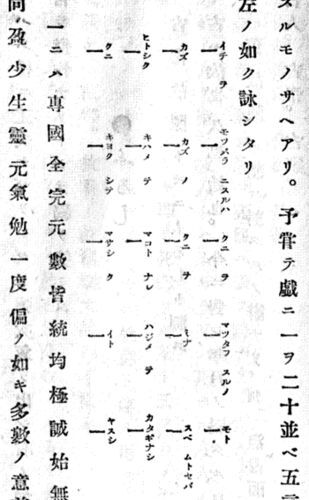 スルモノサヘアリ。予嘗テ戯ニ一ヲ二十並ベ五言
左ノ如ク詠シタリ
イチ ヲ モツパラ ニスルハ クニ ヲ マツタフ スルノ モト
一 一 一 一 一
カズ カズ ノ クニ ヲ ミナ スベ ムトセバ
一 一 一 一 一
ヒトシク キハメ テ マコト ナレ ハジメ テ カタギナシ
一 一 一 一 一
クニ キヨク シテ マサシ ク イト ヤスシ
一 一 一 一 一
一ニハ專國全完元數皆統均極誠始無
盈少生靈元氣勉一度偏ノ如キ多數ノ意